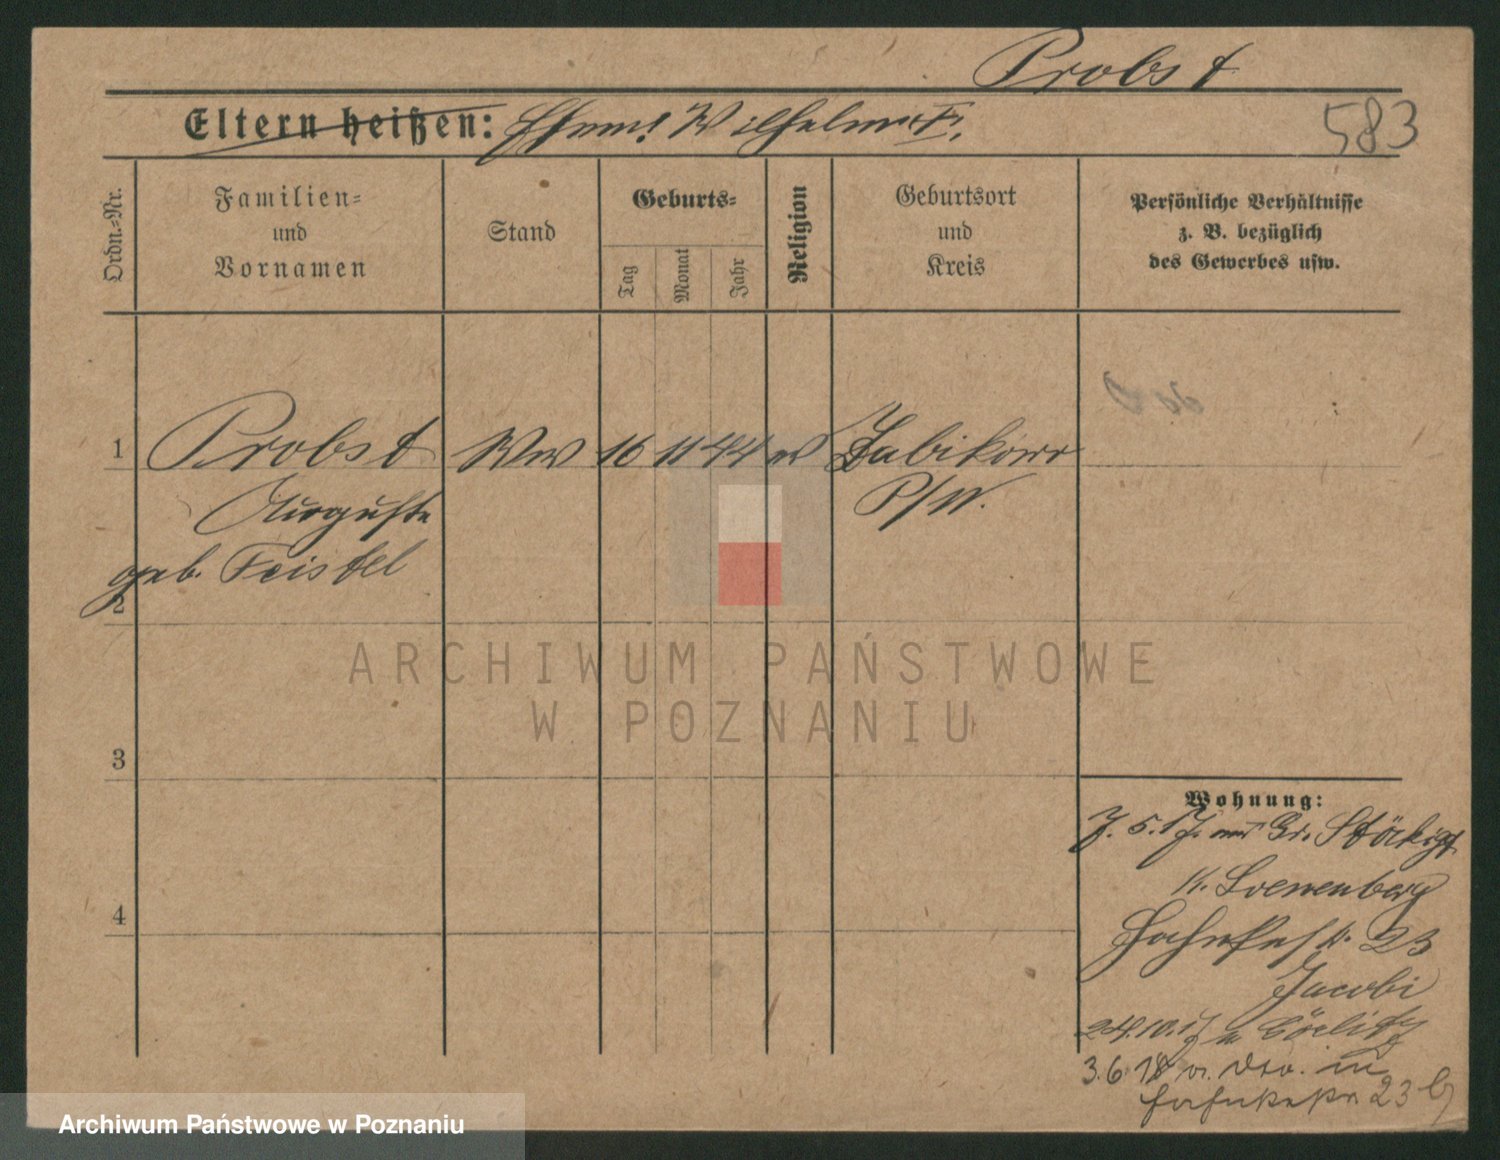 Probst
Eltern heißen: Ehem. Wilhelm †.
583
Ordn.=Nr.
Familien=
und
Vornamen
Stand
Geburts=
Tag
Monat
Jahr
Religion
Geburtsort
und
Kreis
Persönliche Verhältnisse
z. B. bezüglich
des Gewerbes usw.
1
Probst
Ww
16
11
44
ev
Zabikowo
Auguste
P/W.
geb. Feistel
2
ARCHIWUM PAŃSTWOWE
W POZNANIU
3
4
Wohnung:
7. 5. 17. Gr. Stöckigt
K. Loewenberg
23
Jacobi
24.10.17 n Görlitz
3.6.18 v. dto. in
23
Archiwum Państwowe w Poznaniu